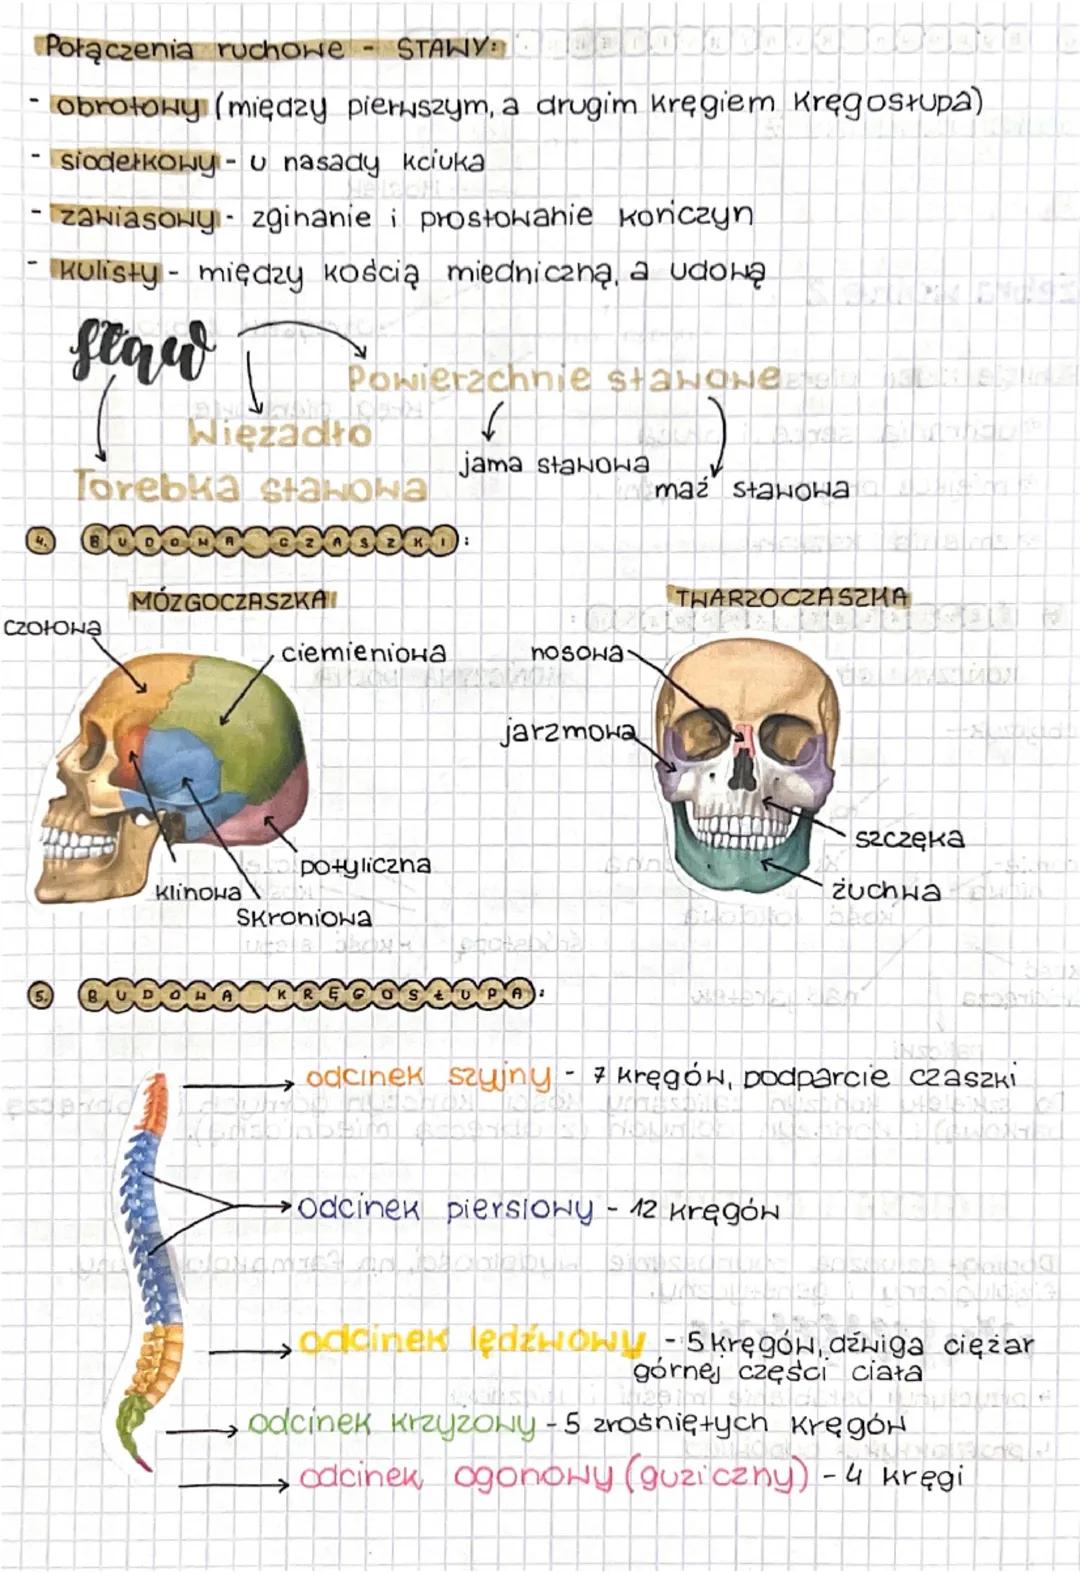 Połączenia ruchowe - STAWY:
- obrotowy (między pierwszym, a drugim kręgiem kręgosłupa)
- siodełkowy - u nasady kciuka
- zawiasowy - zginanie i prostowanie kończyn
- kulisty - między kością miedniczną, a udową
staw
Powierzchnie stawowe
Więzadło
jama stawowa
Torebka stawowa
maź stawowa
4. BUDOWA CZASZKI:
MÓZGOCZASZKA
TWARZOCZASZKA
czołowa
ciemieniowa
nosowa
jarzmowa
szczęka
potyliczna
klinowa
żuchwa
skroniowa
5. BUDOWA KRĘGOSŁUPA:
odcinek szyjny - 7 kręgów, podparcie czaszki
odcinek piersiowy - 12 kręgów
odcinek lędźwowy - 5 kręgów, dźwiga ciężar
górnej części ciała
odcinek krzyżowy - 5 zrośniętych kręgów
odcinek ogonowy (guziczny) - 4 kręgi